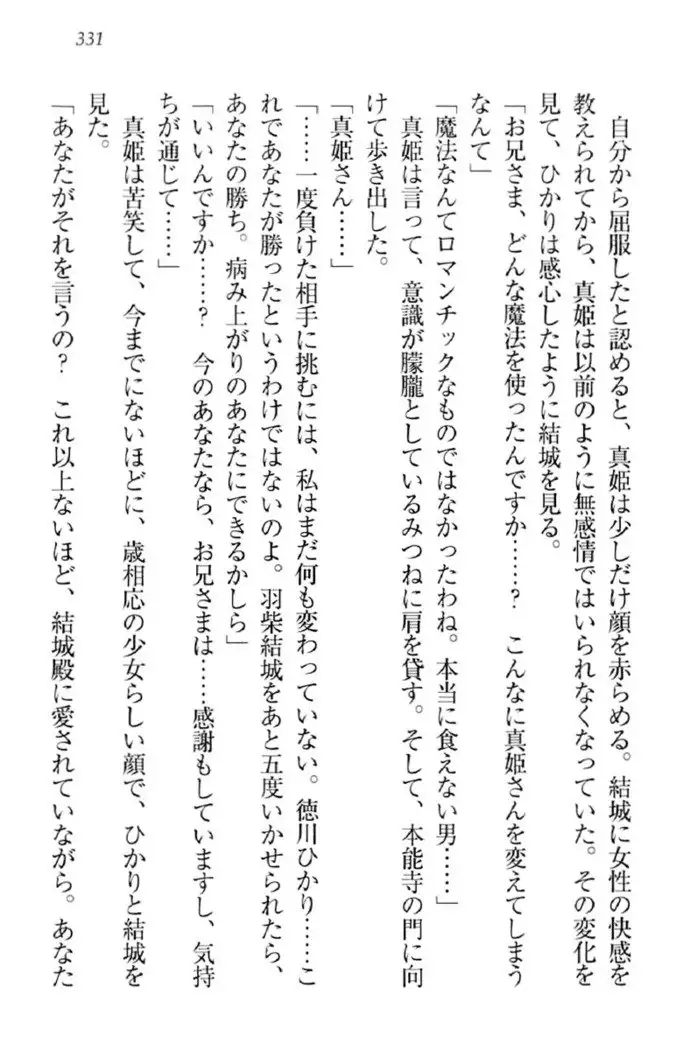 331
自分から屈服したと認めると、真姫は少しだけ顔を赤らめる。結城に女性の快感を
教えられてから、真姫は以前のように無感情ではいられなくなっていた。その変化を
見て、ひかりは感心したように結城を見る。
「お兄さま、どんな魔法を使ったんですか……？　こんなに真姫さんを変えてしまう
なんて」
「魔法なんてロマンチックなものではなかったわね。本当に食えない男……」
真姫は言って、意識が朦朧としているみつねに肩を貸す。そして、本能寺の門に向
けて歩き出した。
「真姫さん……」
「……一度負けた相手に挑むには、私はまだ何も変わっていない。徳川ひかり……こ
れであなたが勝ったというわけではないのよ。羽柴結城をあと五度いかせられたら、
あなたの勝ち。病み上がりのあなたにできるかしら」
「いいんですか……？　今のあなたなら、お兄さまは……感謝もしていますし、気持
ちが通じて……」
真姫は苦笑して、今までにないほどに、歳相応の少女らしい顔で、ひかりと結城を
見た。
「あなたがそれを言うの？　これ以上ないほど、結城殿に愛されていながら。あなた